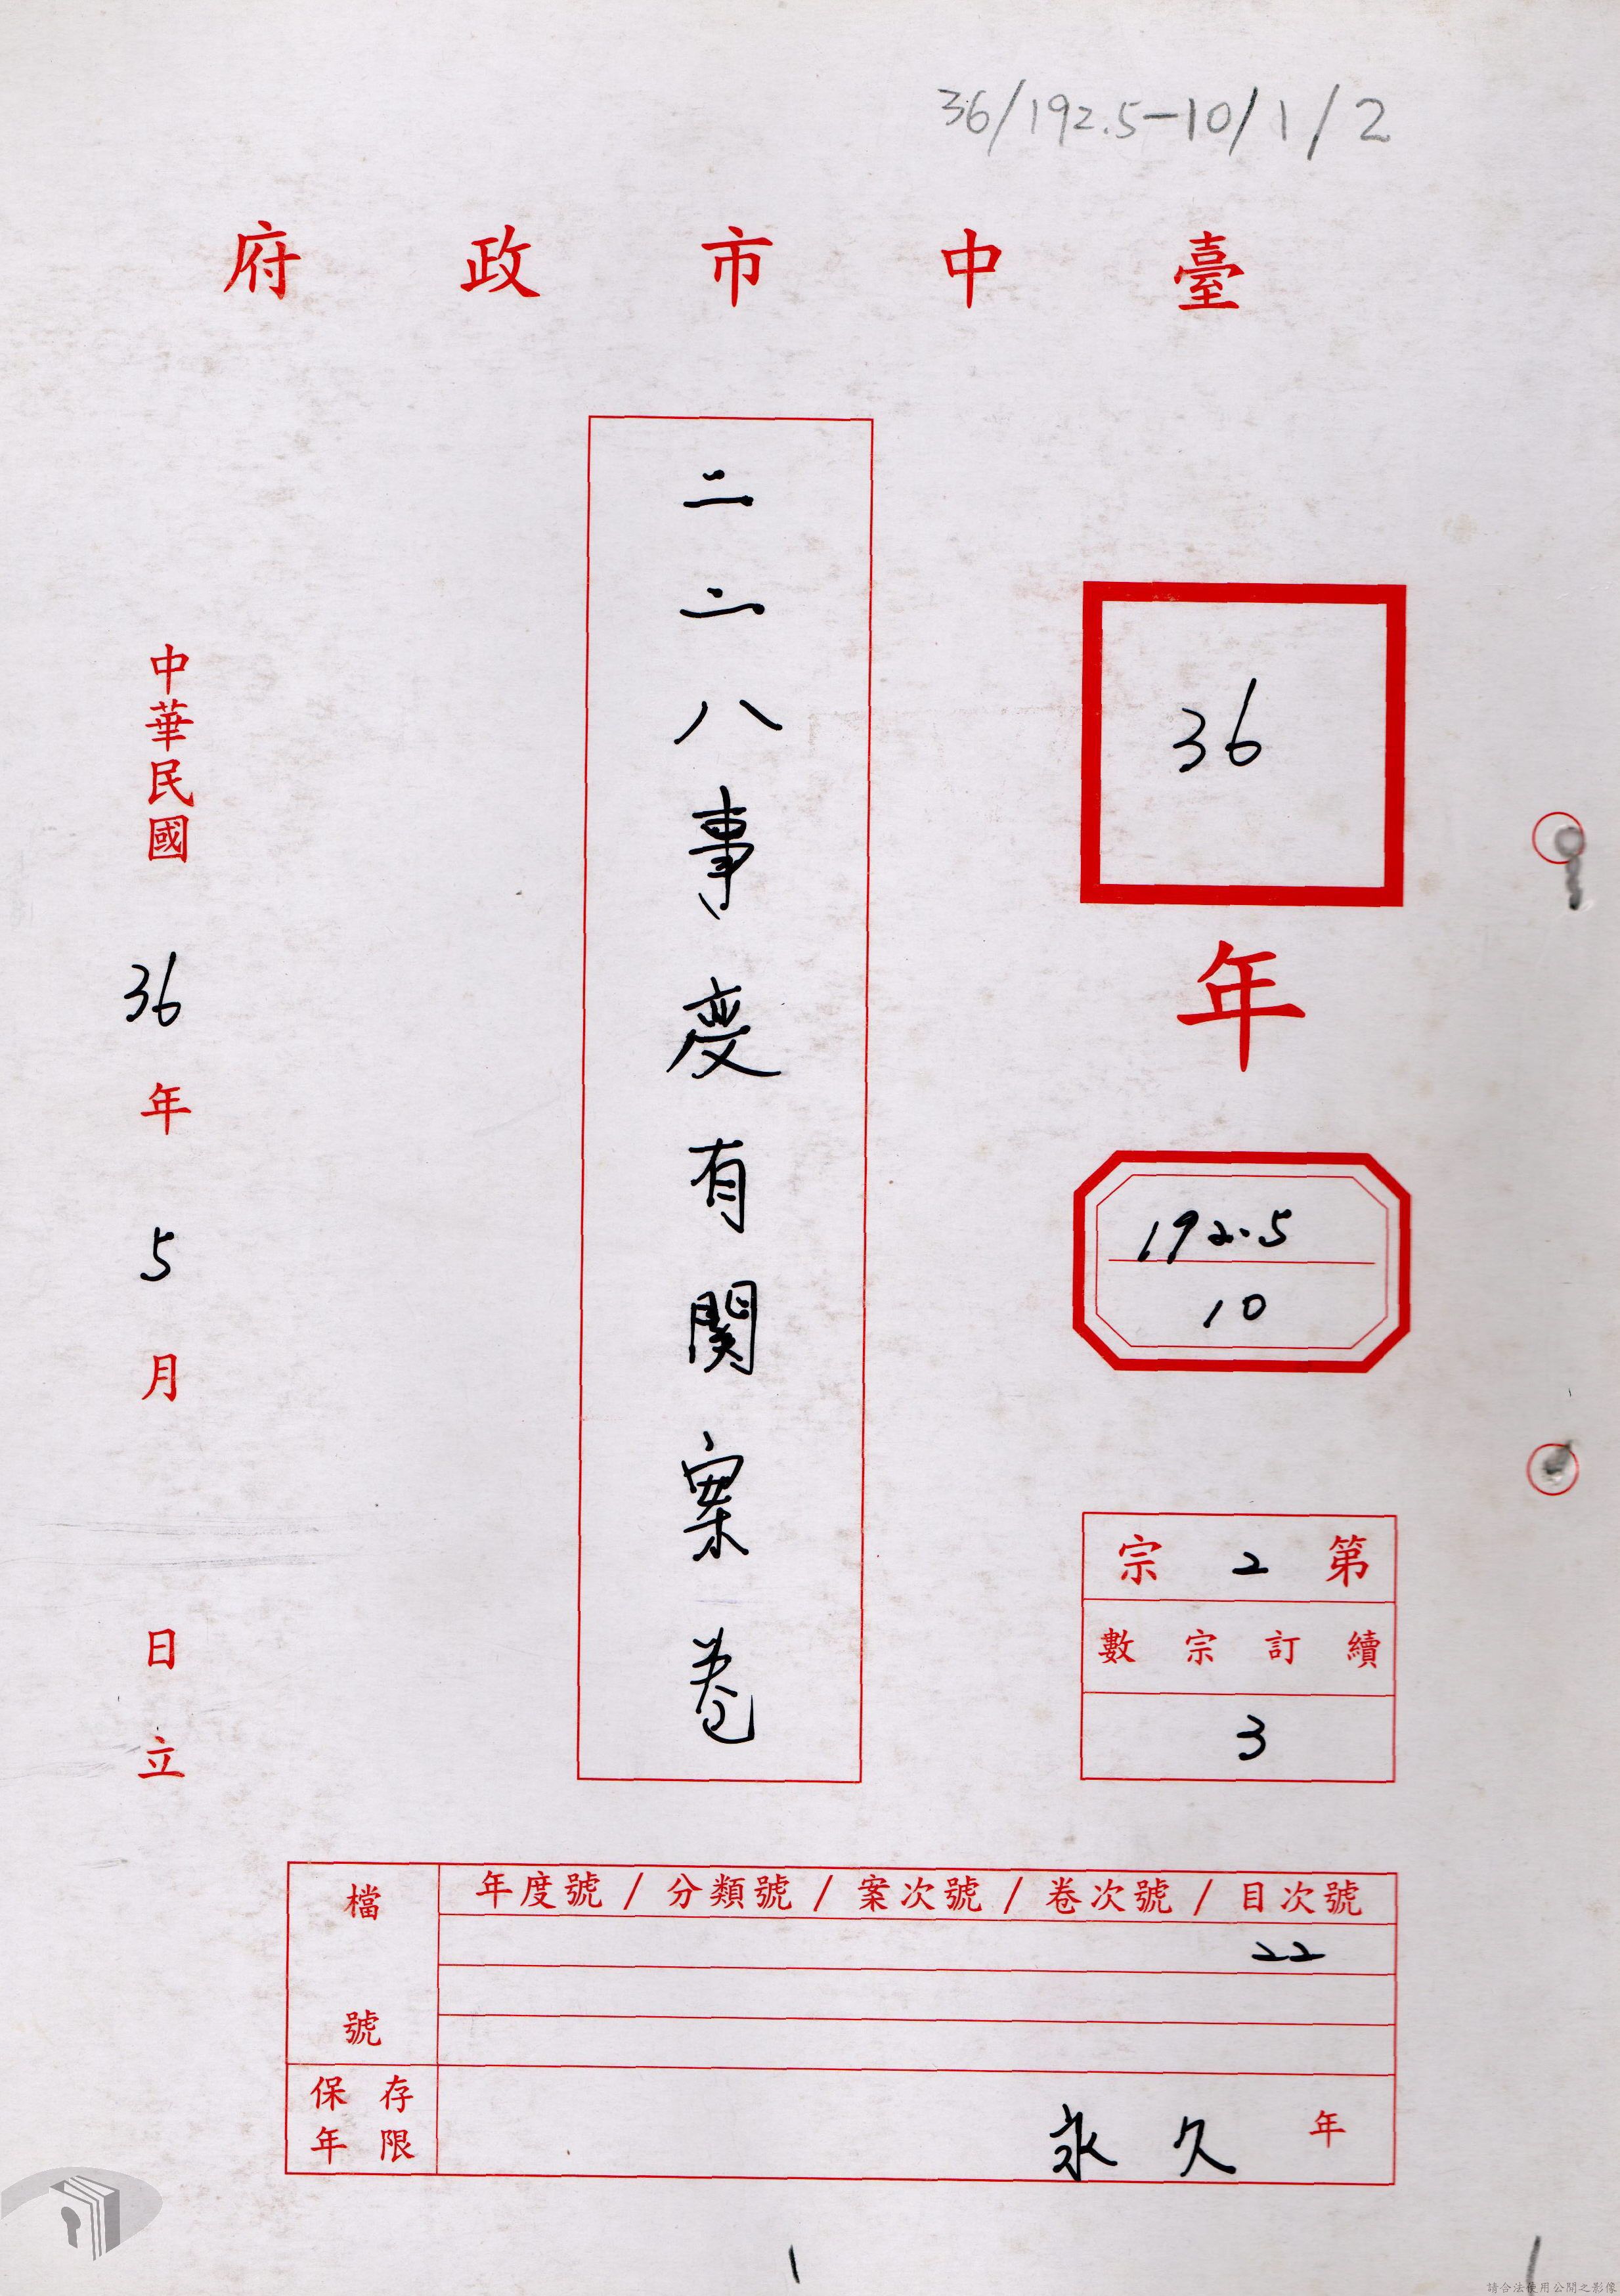 36/192.5-10/1/2
臺中市政府
36
年
192.5
10
第2宗
續訂宗數
3
二二八事变有関案卷
中華民國36年5月 日立
檔號
年度號/分類號/案次號/卷次號/目次號
22
保存年限
永久 年
1
請合法使用公開之影像